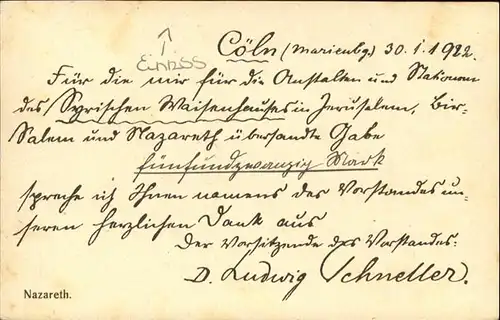 Cöln (Marienbg.) 30.1.1922.
Für die mir für die Anstalten und Stationen
des Syrischen Waisenhauses in Jerusalem, Bir-
Salem und Nazareth übersandte Gabe
fünfundzwanzig Mark
spreche ich Ihnen namens des Vorstandes un-
seren herzlichen Dank aus
Der Vorsitzende des Vorstandes:
D. Ludwig Schneller.
Nazareth.